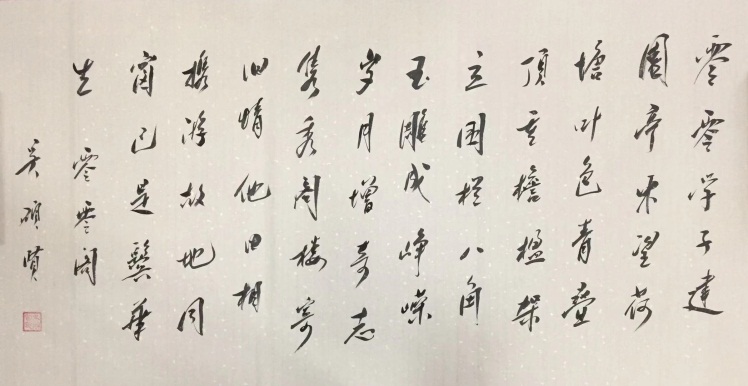 零零学子建
園亭来望荷
塘叶色青叠
顶重檐楹架
立围栏八角
玉雕成峥嵘
岁月增奇志
隽秀阁楼寄
旧情他日相
携游故地同
窗已是鬓华
生 零零阁
吴硕贤